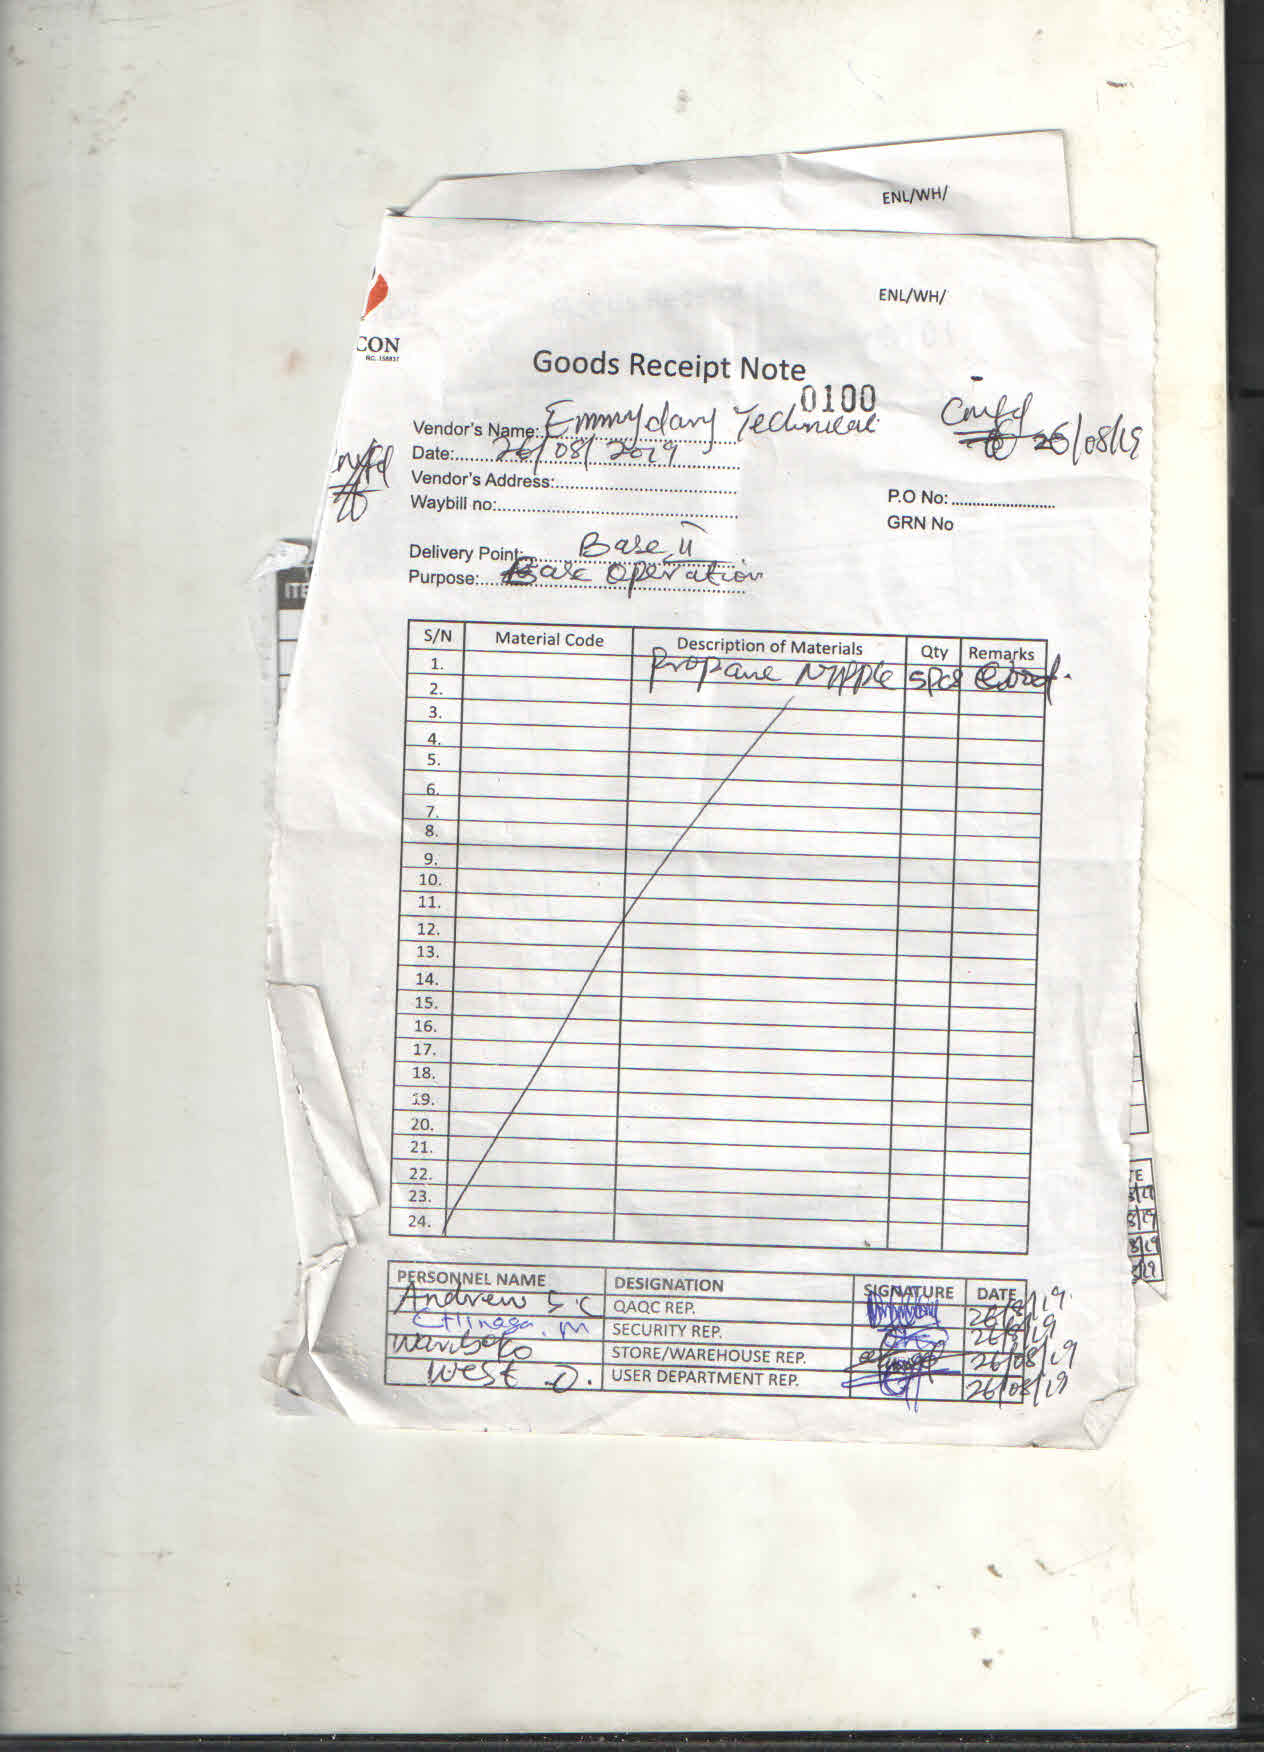 ENL/WH/
ENL/WH/
CON
RC. 158837
Goods Receipt Note
0100
Vendor's Name: Emmydavy Technical
26/08/19
Date: 26/08/2019
Vendor's Address:
Waybill no:
P.O No:
GRN No
Delivery Point: Base II
Purpose: Base Operation
S/N Material Code Description of Materials Qty Remarks
1. Propane Nipple 5pcs Good.
2.
3.
4.
5.
6.
7.
8.
9.
10.
11.
12.
13.
14.
15.
16.
17.
18.
19.
20.
21.
22.
23.
24.
PERSONNEL NAME DESIGNATION SIGNATURE DATE
Andrew S.C QAQC REP. 26/8/19
SECURITY REP. 26/8/19
Wariboko STORE/WAREHOUSE REP. 26/08/19
West .O. USER DEPARTMENT REP. 26/08/19